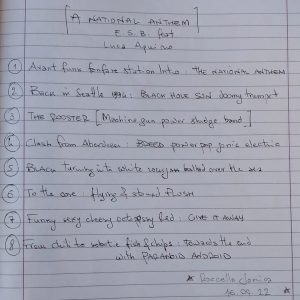 [A NATIONAL ANTHEM]
E.S.B. feat
Luca Aquino
1 Avant funk fanfare station Intro: THE NATIONAL ANTHEM
2 Back in Seattle 1994: BLACK HOLE SUN doomy trumpet
3 THE ROOSTER [Machine gun power sludge band]
4 Clash from Aberdeen: BREED power pop punk electric
5 BLACK turning into white over the
6 To the core: flying & stoned PLUSH
7 Funny very cheesy Red: GIVE IT AWAY
8 From chil to robotic fish & chips: Towards the end
with PARANOID ANDROID
16.09.22